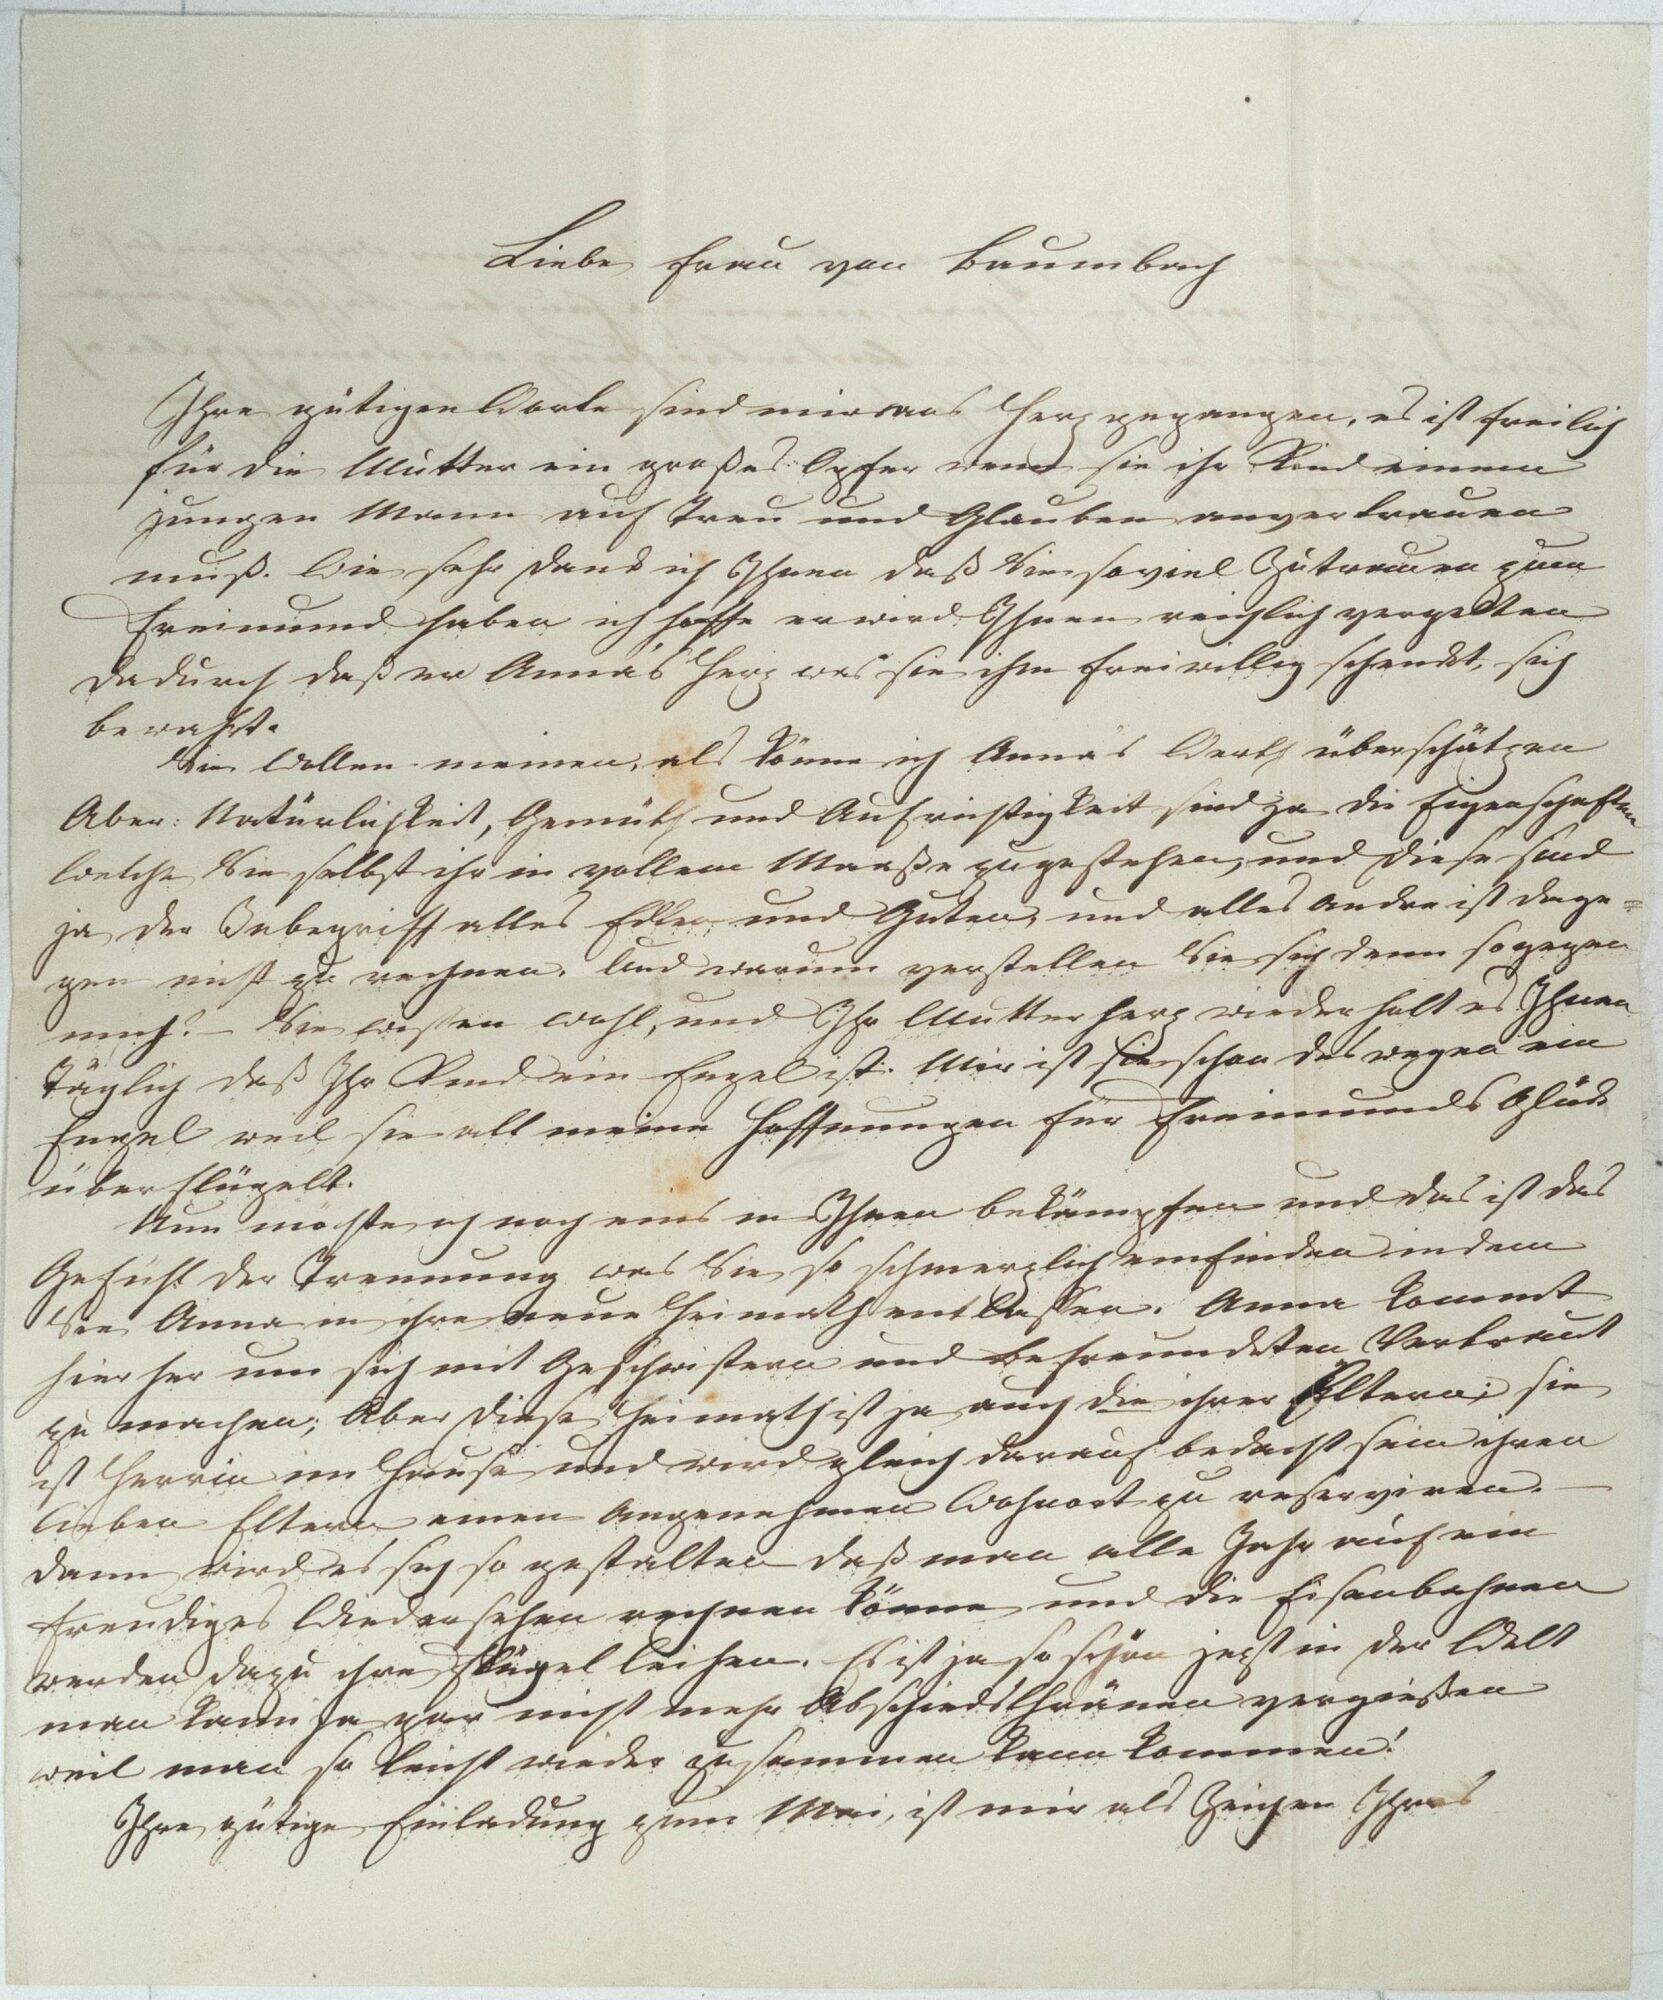 Liebe Frau von Baumbach
Ihre gütigen Worte sind mir ans Herz gegangen, es ist freilich
für die Mutter ein großes Opfer wenn sie ihr Kind einem
jungen Mann auf Treu und Glauben anvertrauen
muß. Wie sehr Dank ich Ihnen daß Sie soviel Zutrauen zum
Freimund haben ich hoffe er wird Ihnen reichlich vergelten
dadurch daß er Anna's Herz was sie ihm freiwillig schenkt, sich
bewahrt.
Sie Wollen meinen, als könne ich Anna's Werth überschätzen
Aber: Natürlichkeit, Gemüth und Aufrichtigkeit sind ja die Eigenschaften
welche Sie selbst ihr in vollem Maaße zugestehen, und diese sind
ja der Inbegriff alles Edlen und Guten, und alles Andre ist dage=
gen nicht zu rechnen. Und warum verstellen Sie sich denn so gegen
mich? — Sie wissen wohl, und Ihr Mutterherz wiederholt es Ihnen
Täglich daß Ihr Kind ein Engel ist. Mir ist sie schon deswegen ein
Engel weil sie all meine Hoffnungen für Freimunds Glück
überflügelt.
Nun möchte ich noch eins in Ihnen bekämpfen und das ist das
Gefühl der Trennung was Sie so schmerzlich empfinden indem
Sie Anna in ihre neue Heimath entlassen. Anna kommt
hierher um sich mit Geschwistern und Befreundeten Vertraut
zu machen; Aber diese Heimath ist ja auch die ihrer Eltern; sie
ist Herrin im Hause und wird gleich darauf bedacht sein ihren
lieben Eltern einen Angenehmen Wohnort zu reserviren. —
dann wird es sich so gestalten daß man alle Jahr auf ein
freudiges Wiedersehen rechnen könne und die Eisenbahnen
werden dazu ihre Flügel leihen. Es ist ja so schön jezt in der Welt
man kann ja gar nicht mehr Abschiedsthränen vergießen
weil man so leicht wieder zusammen kann kommen!
Ihre gütige Einladung zum Mai, ist mir als Zeichen Ihres